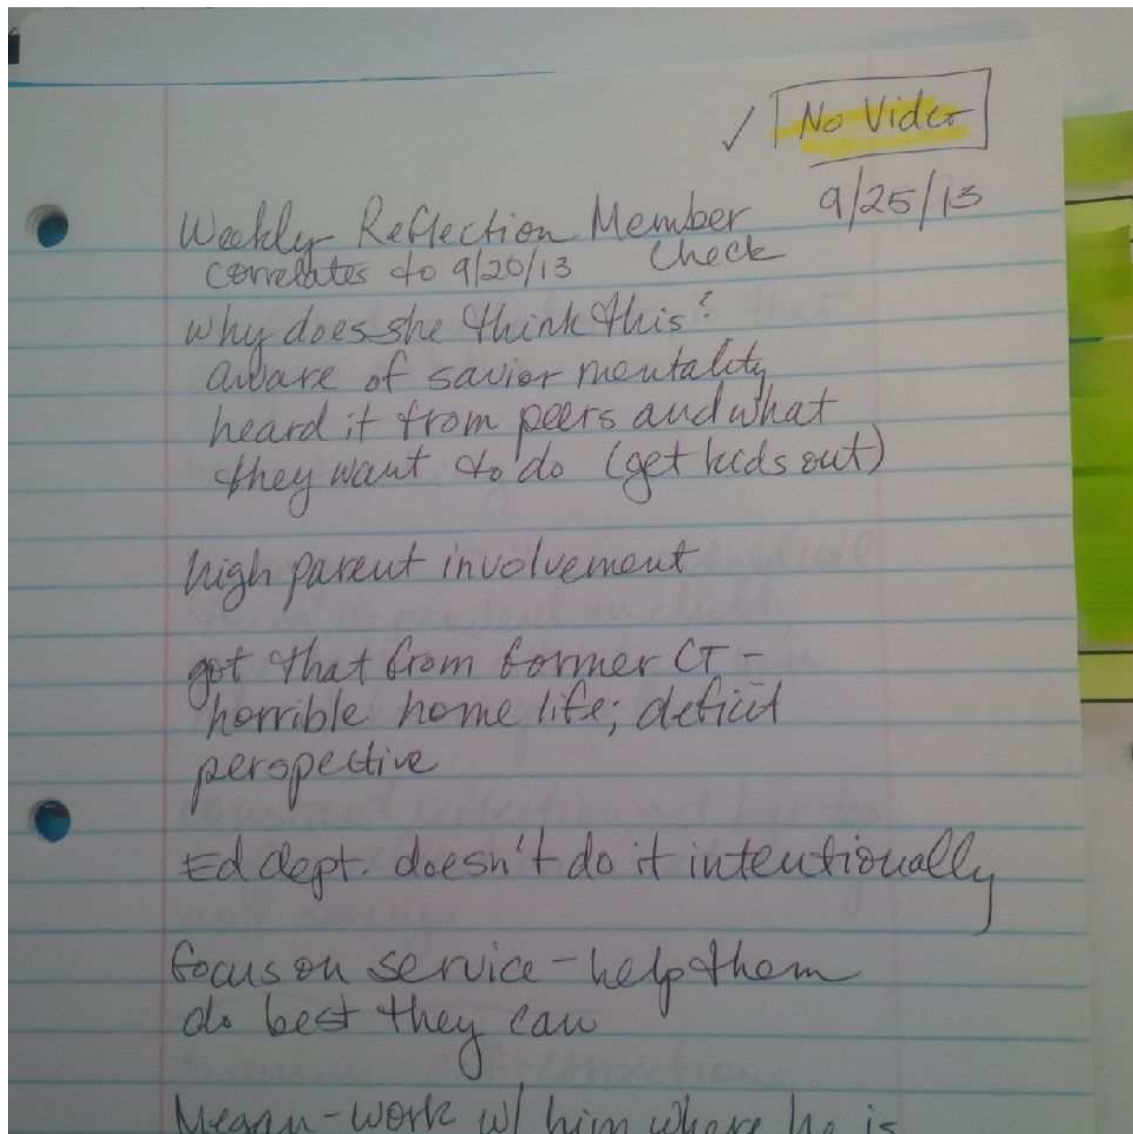 ✓ No Video
9/25/13
Weekly Reflection Member
correlates to 9/20/13 Check
why does she think this?
aware of savior mentality
heard it from peers and what
they want to do (get kids out)
high parent involvement
got that from former CT -
horrible home life; deficit
perspective
Ed dept. doesn't do it intentionally
focus on service - help them
do best they can
Megan - work w/ him where he is